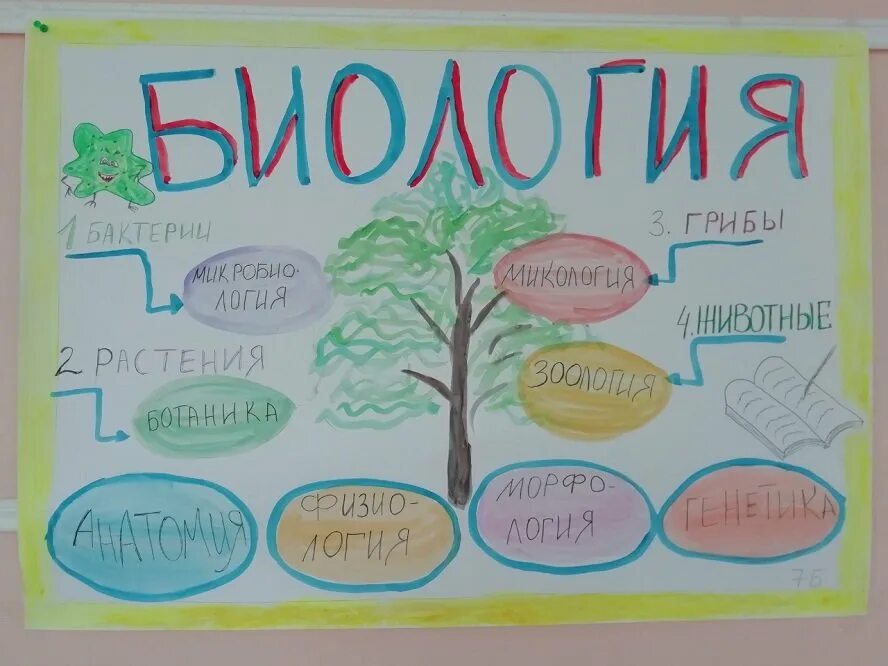 БИОЛОГИЯ
1 БАКТЕРИИ
МИКРОБИО-
ЛОГИЯ
2 РАСТЕНИЯ
БОТАНИКА
3. ГРИБЫ
МИКОЛОГИЯ
4. ЖИВОТНЫЕ
ЗООЛОГИЯ
АНАТОМИЯ
ФИЗИО-
ЛОГИЯ
МОРФО-
ЛОГИЯ
ГЕНЕТИКА
7Б